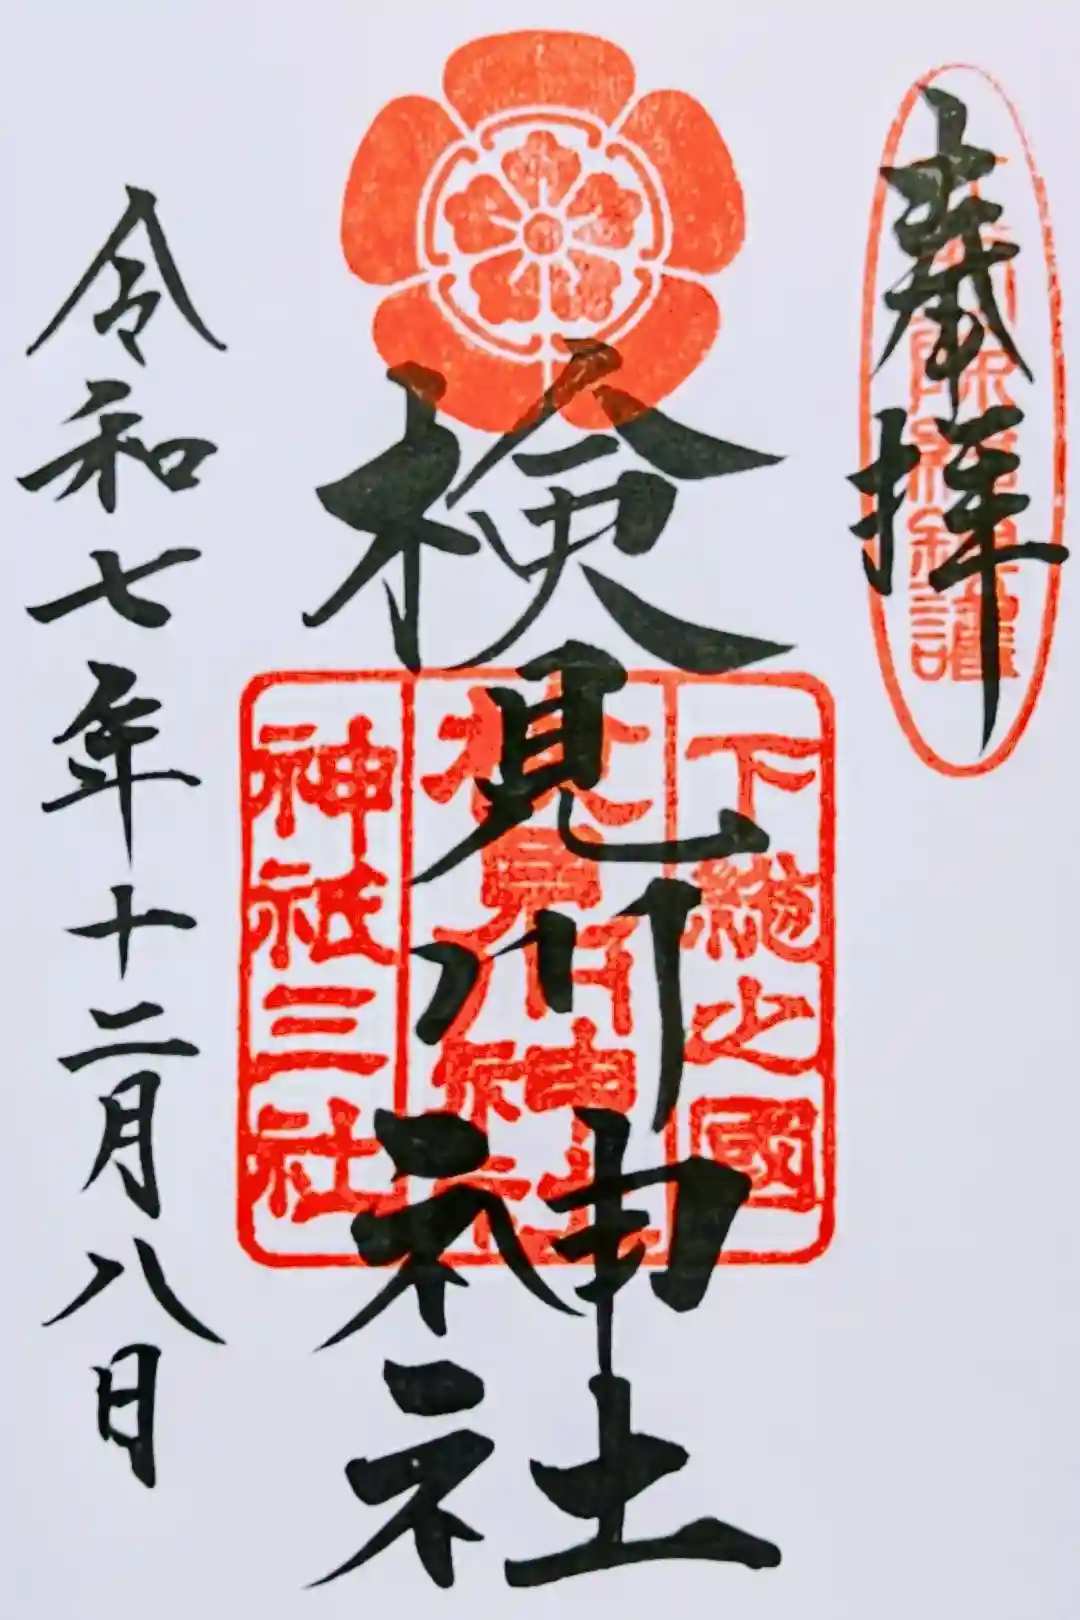 奉拝
下総之國
検見川神社
検見川神社
神祇三社
令和七年十二月八日